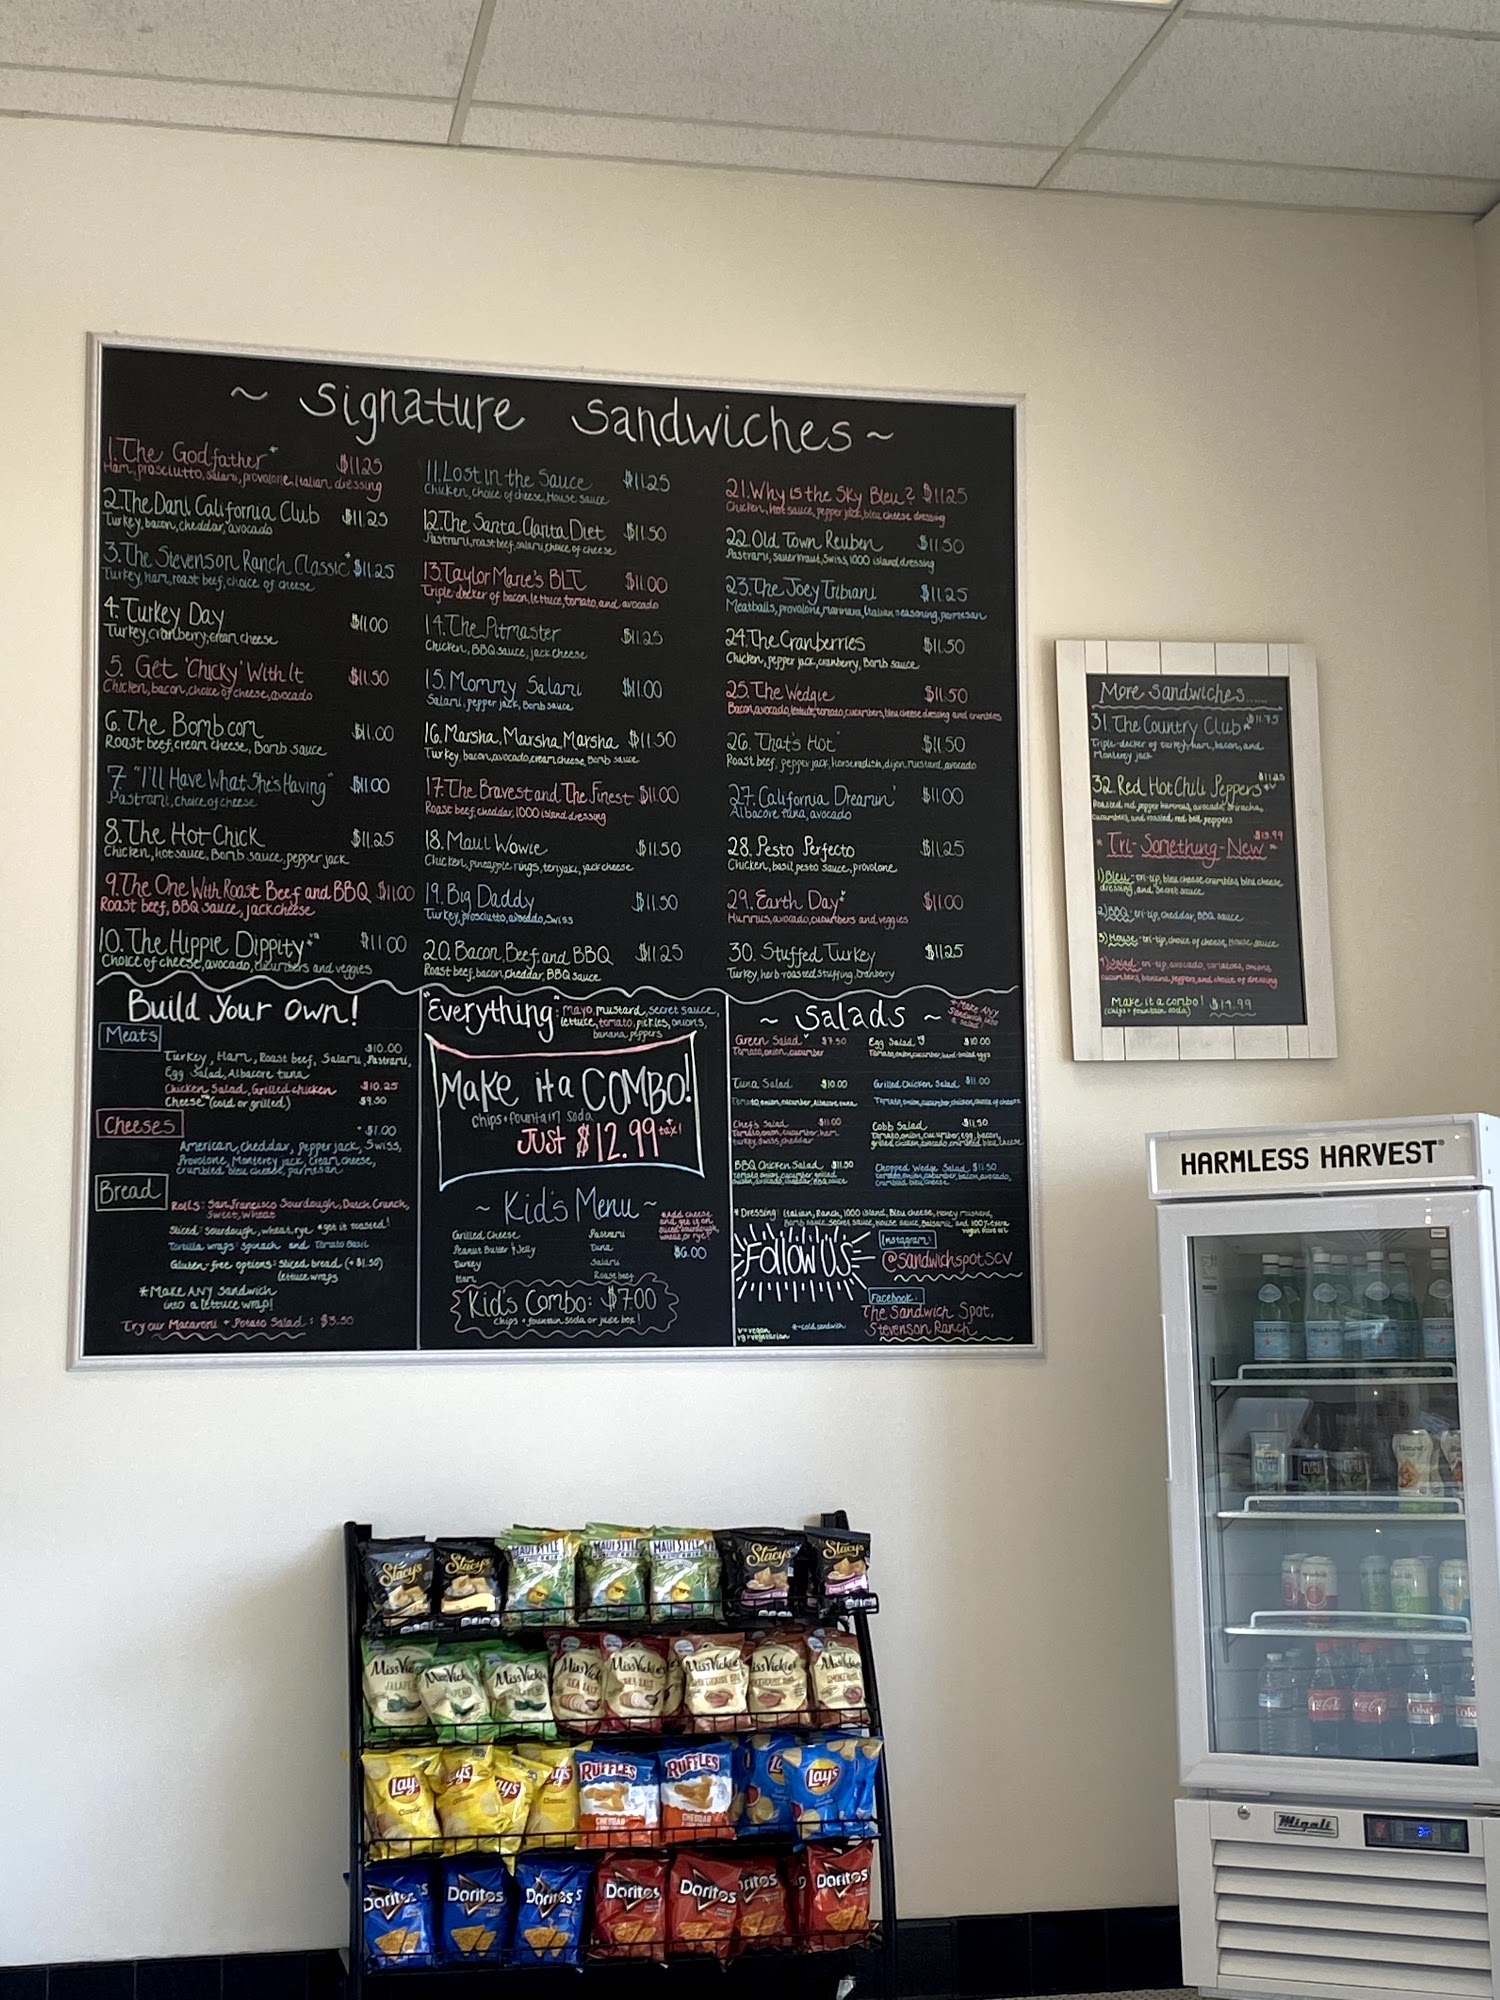 ~ Signature Sandwiches ~
1. The Godfather* $11.25
Ham, prosciutto, salami, provolone, Italian dressing
2. The Dani California Club $11.25
Turkey, bacon, cheddar, avocado
3. The Stevenson Ranch Classic* $11.25
Turkey, ham, roast beef, choice of cheese
4. Turkey Day $11.00
Turkey, cranberry, cream cheese
5. Get 'Chicky' With It $11.50
Chicken, bacon, choice of cheese, avocado
6. The Bombcom $11.00
Roast beef, cream cheese, Bomb sauce
7. "I'll Have What She's Having" $11.00
Pastrami, choice of cheese
8. The Hot Chick $11.25
Chicken, hot sauce, Bomb sauce, pepper jack
9. The One With Roast Beef and BBQ $11.00
Roast beef, BBQ sauce, jack cheese
10. The Hippie Dippity $11.00
Choice of cheese, avocado, cucumbers and veggies
11. Lost in the Sauce $11.25
Chicken, choice of cheese, House sauce
12. The Santa Clarita Diet $11.50
Pastrami, roast beef, salami, choice of cheese
13. Taylor Marie's BLT $11.00
Triple-decker of bacon, lettuce, tomato, and avocado
14. The Pitmaster $11.25
Chicken, BBQ sauce, jack cheese
15. Mommy Salami $11.00
Salami, pepper jack, Bomb sauce
16. Marsha, Marsha, Marsha $11.50
Turkey, bacon, avocado, cream cheese, Bomb sauce
17. The Bravest and The Finest $11.00
Roast beef, cheddar, 1000 island dressing
18. Maui Wowie $11.50
Chicken, pineapple rings, teriyaki, jack cheese
19. Big Daddy $11.50
Turkey, prosciutto, avocado, Swiss
20. Bacon, Beef, and BBQ $11.25
Roast beef, bacon, cheddar, BBQ sauce
21. Why is the Sky Bleu? $11.25
Chicken, hot sauce, pepper jack, bleu cheese dressing
22. Old Town Reuben $11.50
Pastrami, sauerkraut, Swiss, 1000 island dressing
23. The Joey Tribiani $11.25
Meatballs, provolone, marinara, Italian seasoning, parmesan
24. The Cranberries $11.50
Chicken, pepper jack, cranberry, Bomb sauce
25. The Wedgie $11.50
Bacon, avocado, lettuce, tomato, cucumbers, bleu cheese dressing and crumbles
26. That's Hot $11.50
Roast beef, pepper jack, horseradish, dijon mustard, avocado
27. California Dreamin' $11.00
Albacore tuna, avocado
28. Pesto Perfecto $11.25
Chicken, basil pesto sauce, provolone
29. Earth Day* $11.00
Hummus, avocado, cucumbers and veggies
30. Stuffed Turkey $11.25
Turkey, herb-roasted stuffing, cranberry
Build Your Own!
Meats
$10.00
Turkey, Ham, Roast beef, Salami, Pastrami,
Egg Salad, Albacore tuna
Chicken Salad, Grilled chicken $10.25
Cheese (cold or grilled) $9.50
Cheeses
$1.00
American, cheddar, pepper jack, Swiss,
Provolone, Monterey jack, cream cheese,
crumbled bleu cheese, parmesan
Bread
Rolls: San Francisco Sourdough, Dutch Crunch,
Sweet, wheat
Sliced: sourdough, wheat, rye *get it toasted!
Tortilla wraps: Spinach and Tomato Basil
Gluten-free options: Sliced bread (+$1.50)
lettuce wraps
*Make ANY Sandwich
into a lettuce wrap!
Try our Macaroni + Potato Salad: $3.50
"Everything": mayo, mustard, secret sauce,
lettuce, tomato, pickles, onions,
banana peppers
Make it a COMBO!
chips + fountain soda
JUST $12.99 + tax!
~ Kid's Menu ~
*Add cheese
and get it on
sliced sourdough,
wheat, or rye!
Grilled Cheese
Peanut Butter & Jelly
Turkey
Ham
Pastrami
Tuna
Salami
Roast beef
$6.00
Kid's Combo: $7.00
chips + fountain soda or juice box!
~ Salads ~
*Make ANY
Sandwich into
a salad!
Green Salad $7.50
Tomato, onion, cucumber
Egg Salad $10.00
Tomato, onion, cucumber, hard-boiled eggs
Tuna Salad $10.00
Tomato, onion, cucumber, Albacore tuna
Grilled Chicken Salad $11.00
Tomato, onion, cucumber, chicken, choice of cheese
Chef's Salad $11.00
Tomato, onion, cucumber, ham,
turkey, Swiss, cheddar
Cobb Salad $11.50
Tomato, onion, cucumber, egg, bacon,
grilled chicken, avocado, crumbled bleu cheese
BBQ Chicken Salad $11.50
Tomato, onion, cucumber, grilled
chicken, avocado, cheddar, BBQ sauce
Chopped Wedge Salad $11.50
Tomato, onion, cucumber, bacon, avocado,
crumbled bleu cheese
* Dressing: Italian, Ranch, 1000 island, Bleu cheese, Honey mustard,
Bomb sauce, Secret sauce, House sauce, Balsamic, and 100% extra
virgin olive oil
Follow US
Instagram:
@sandwichspotscv
Facebook:
The Sandwich Spot,
Stevenson Ranch
v=vegan
vg=vegetarian
*=cold sandwich
More Sandwiches......
31. The Country Club* $11.75
Triple-decker of turkey, ham, bacon, and
Monterey jack
32. Red Hot Chili Peppers $11.25
Roasted red pepper hummus, avocado, Sriracha,
cucumbers, and roasted red bell peppers
* Tri-Something-New * $13.99
1) Bleu- tri-tip, bleu cheese crumbles, bleu cheese
dressing, and Secret sauce
2) BBQ- tri-tip, cheddar, BBQ sauce
3) House- tri-tip, choice of cheese, House sauce
4) Salad- tri-tip, avocado, tomatoes, onions,
cucumbers, banana peppers and choice of dressing
Make it a combo! $14.99
(chips + fountain soda)
HARMLESS HARVEST
Migali
Stacy's
Stacy's
MAUI STYLE
MAUI STYLE
MAUI STYLE
Stacy's
Stacy's
Miss Vickie's
JALAPEÑO
Miss Vickie's
Miss Vickie's
SEA SALT
Miss Vickie's
SMOKEHOUSE BBQ
Lay's
Classic
Lay's
Lay's
RUFFLES
CHEDDAR
RUFFLES
CHEDDAR
Lay's
Doritos
Doritos
Doritos
Doritos
Doritos
Doritos
Doritos
Coke